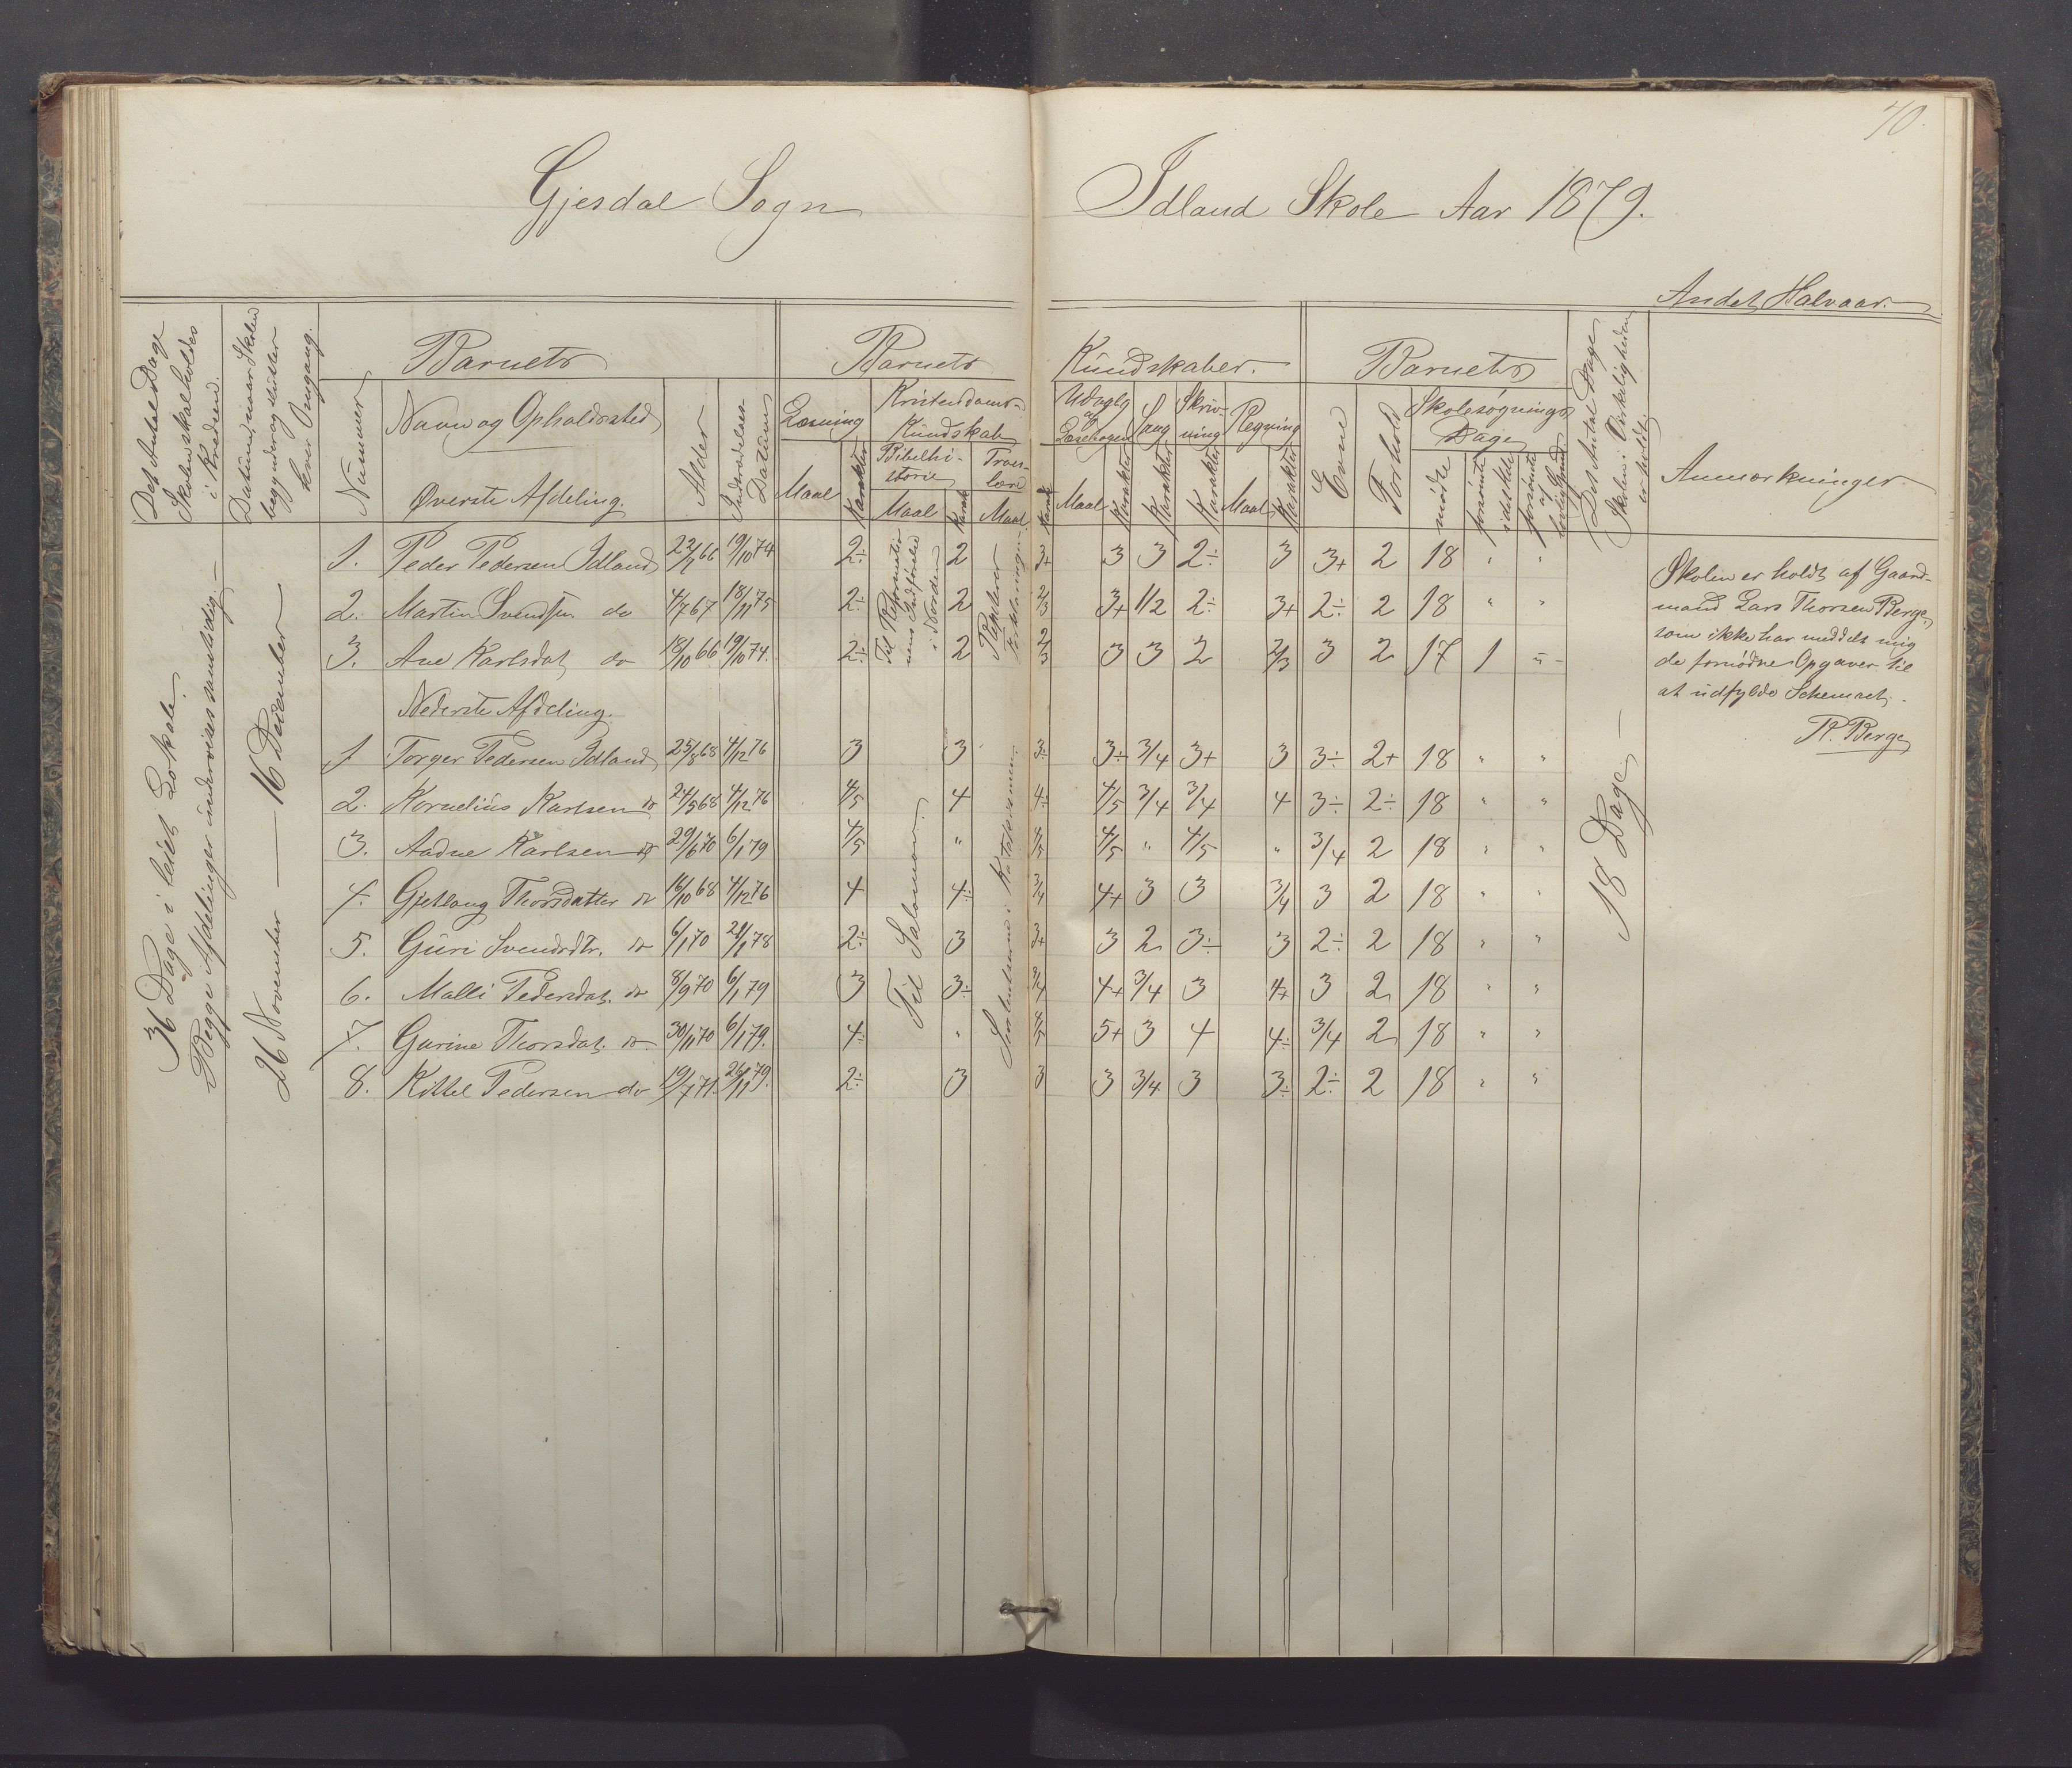 70.
Gjesdal Sogn
Idland Skole Aar 1879.
Andet Halvaar.
Det Antal Dage
Skolen skal holdes
i Kredsen.
Datum, naar Skolen
begynder og slutter
hver Omgang.
Nummer
Barnets
Navn og Opholdssted
Øverste Afdeling.
Alder
Indtrædelses-
Datum
Barnets
Kundskaber.
Læsning
Maal
Karakter
Kristendoms-
Kundskab
Bibelhi-
storie
Maal
Karak
Troes-
lære
Maal
Karak
Udvalg
af
Læsebogen
Maal
Karakter
Sang
Karakter
Skriv-
ning
Karakter
Regning
Maal
Karakter
Barnets
Evne
Forhold
Skolesøgnings
Dage
mødte
forsømte
i det Hele
forsømte
af
lovlig Grund
Det Antal Dage
Skolen i Virkeligheden
er holdt.
Anmærkninger
36 Dage i leiet Lokale.
Begge Afdelinger undervises samtidig.
26 November — 16 December
1. Peder Pedersen Idland 22/1 66 19/10 74 2÷ 2 3+ 3 3 2÷ 3 3+ 2 18 " "
2. Martin Svendsen do 4/7 67 18/11 75 2÷ 2 2/3 3+ 1/2 2÷ 3+ 2÷ 2 18 " "
3. Ane Karlsdat. do 18/10 66 19/10 74. 2÷ 2 2/3 3 3 2 2/3 3 2 17 1 "
Til Reformatio-
nens Indførelse
i Norden
Repeterer
Forklaringen
Nederste Afdeling.
1 Torger Pedersen Idland 25/8 68 4/12 76 3 3 3÷ 3÷ 3/4 3+ 3 3÷ 2+ 18 " "
2. Kornelius Karlsen do 24/5 68 4/12 76 4/5 4 4÷ 4/5 3/4 3/4 4 3÷ 2÷ 18 " "
3. Aadne Karlsen do 29/6 70 6/1 79 4/5 " 4/5 4/5 " 4/5 " 3/4 2 18 " "
4. Gjetlaug Thorsdatter do 16/10 68 4/12 76 4 4÷ 3/4 4+ 3 3 3/4 3 2 18 " "
5. Guri Svendsdtr. do 6/1 70 21/1 78 2÷ 3 3+ 3 2 3÷ 3 2÷ 2 18 " "
6. Malli Pedersdat. do 8/9 70 6/1 79 3 3÷ 3/4 4+ 3/4 3 4+ 3 2 18 " "
7. Gurine Thorsdat. do 30/11 70 6/1 79. 4÷ " 4/5 5+ 3 4 4÷ 3/4 2 18 " "
8. Kittel Pedersen do 19/7 71. 26/11 79. 2÷ 3 3 3 3/4 3 3÷ 2÷ 2 18 " "
Til Salomon.
i Katekismen.
18 Dage
Skolen er holdt af Gaard-
mand Lars Thorsen Berge,
som ikke har meddelt mig
de fornødne Opgaver til
at udfylde Schemaet.
P. Berge